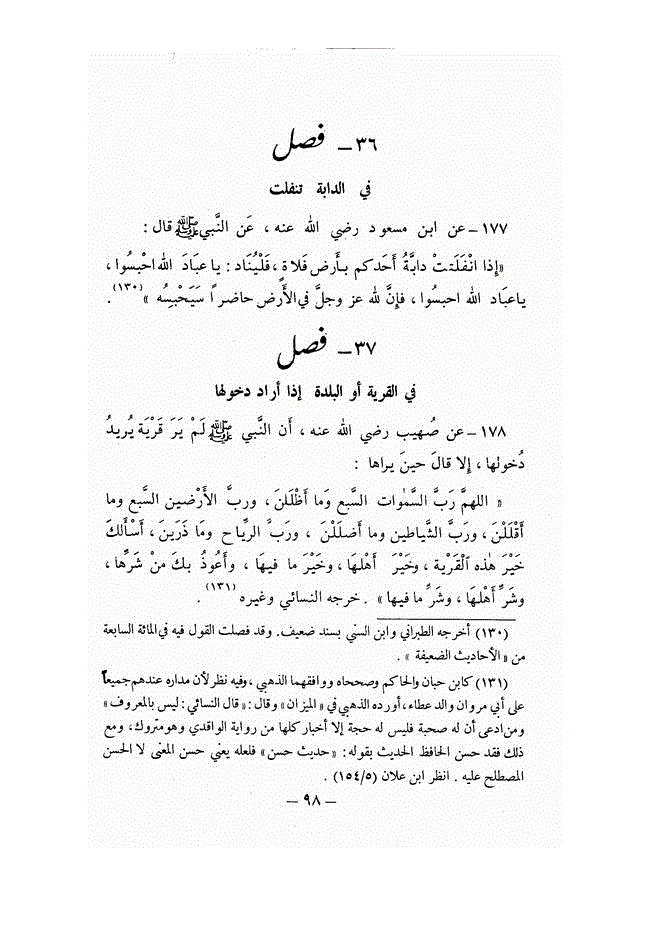 ٣٦ ـ فصل
في الدابة تنفلت
١٧٧ ـ عن ابن مسعود رضي الله عنه ، عَن النَّبي ﷺ قال :
«إذا انْفَلَتتْ دابَّةُ أَحَدكم بأَرض فَلاةٍ ، فَلْيُنَاد : يا عبَادَ الله احْبِسُوا ،
ياعبَاد الله احبسُوا ، فإنَّ لله عز وجلَّ في الأَرض حاضراً سَيَحْبِسُه » (١٣٠) .
٣٧ ـ فصل
في القرية أو البلدة إذا أراد دخولها
١٧٨ ـ عن صُهيب رضي الله عنه ، أَن النَّبي ﷺ لَمْ يَرَ قَرْيَة يُريدُ
دُخولها ، إلا قالَ حينَ يراها :
« اللهمَّ رَبَّ السَّمٰوات السَّبع وَما أَظْلَلنَ ، وربَّ الأَرْضين السَّبع وما
أَقْلَلْنَ ، وربَّ الشَّياطين وما أَضلَلْنَ ، وربَّ الرِّياح ومَا ذَرَينَ ، أَسْأَلكَ
خَيْرَ هٰذه القَرْيَة ، وخَيْرَ أَهْلهَا ، وخَيْرَ ما فيهَا ، وأَعُوذُ بكَ منْ شَرِّها ،
وشرِّ أَهْلهَا ، وشرِّ ما فيها» . خرجه النسائي وغيره (١٣١) .
(١٣٠) أخرجه الطبراني وابن السنّي بسند ضعيف. وقد فصلت القول فيه في المائة السابعة
من «الأحاديث الضعيفة » .
(١٣١) كابن حبان والحاكم وصححاه ووافقهما الذهبي ، وفيه نظر لأن مداره عندهم جميعاً
على أبي مروان والد عطاء، أورده الذهبي في « الميزان » وقال : «قال النسائي : ليس بالمعروف »
ومن ادعى أن له صحبة فليس له حجة إلا أخبار كلها من رواية الواقدي وهو متروك، ومع
ذلك فقد حسن الحافظ الحديث بقوله : «حديث حسن» فلعله يعني حسن المعنى لا الحسن
المصطلح عليه . انظر ابن علان (١٥٤/٥) .
ـ ٩٨ ـ